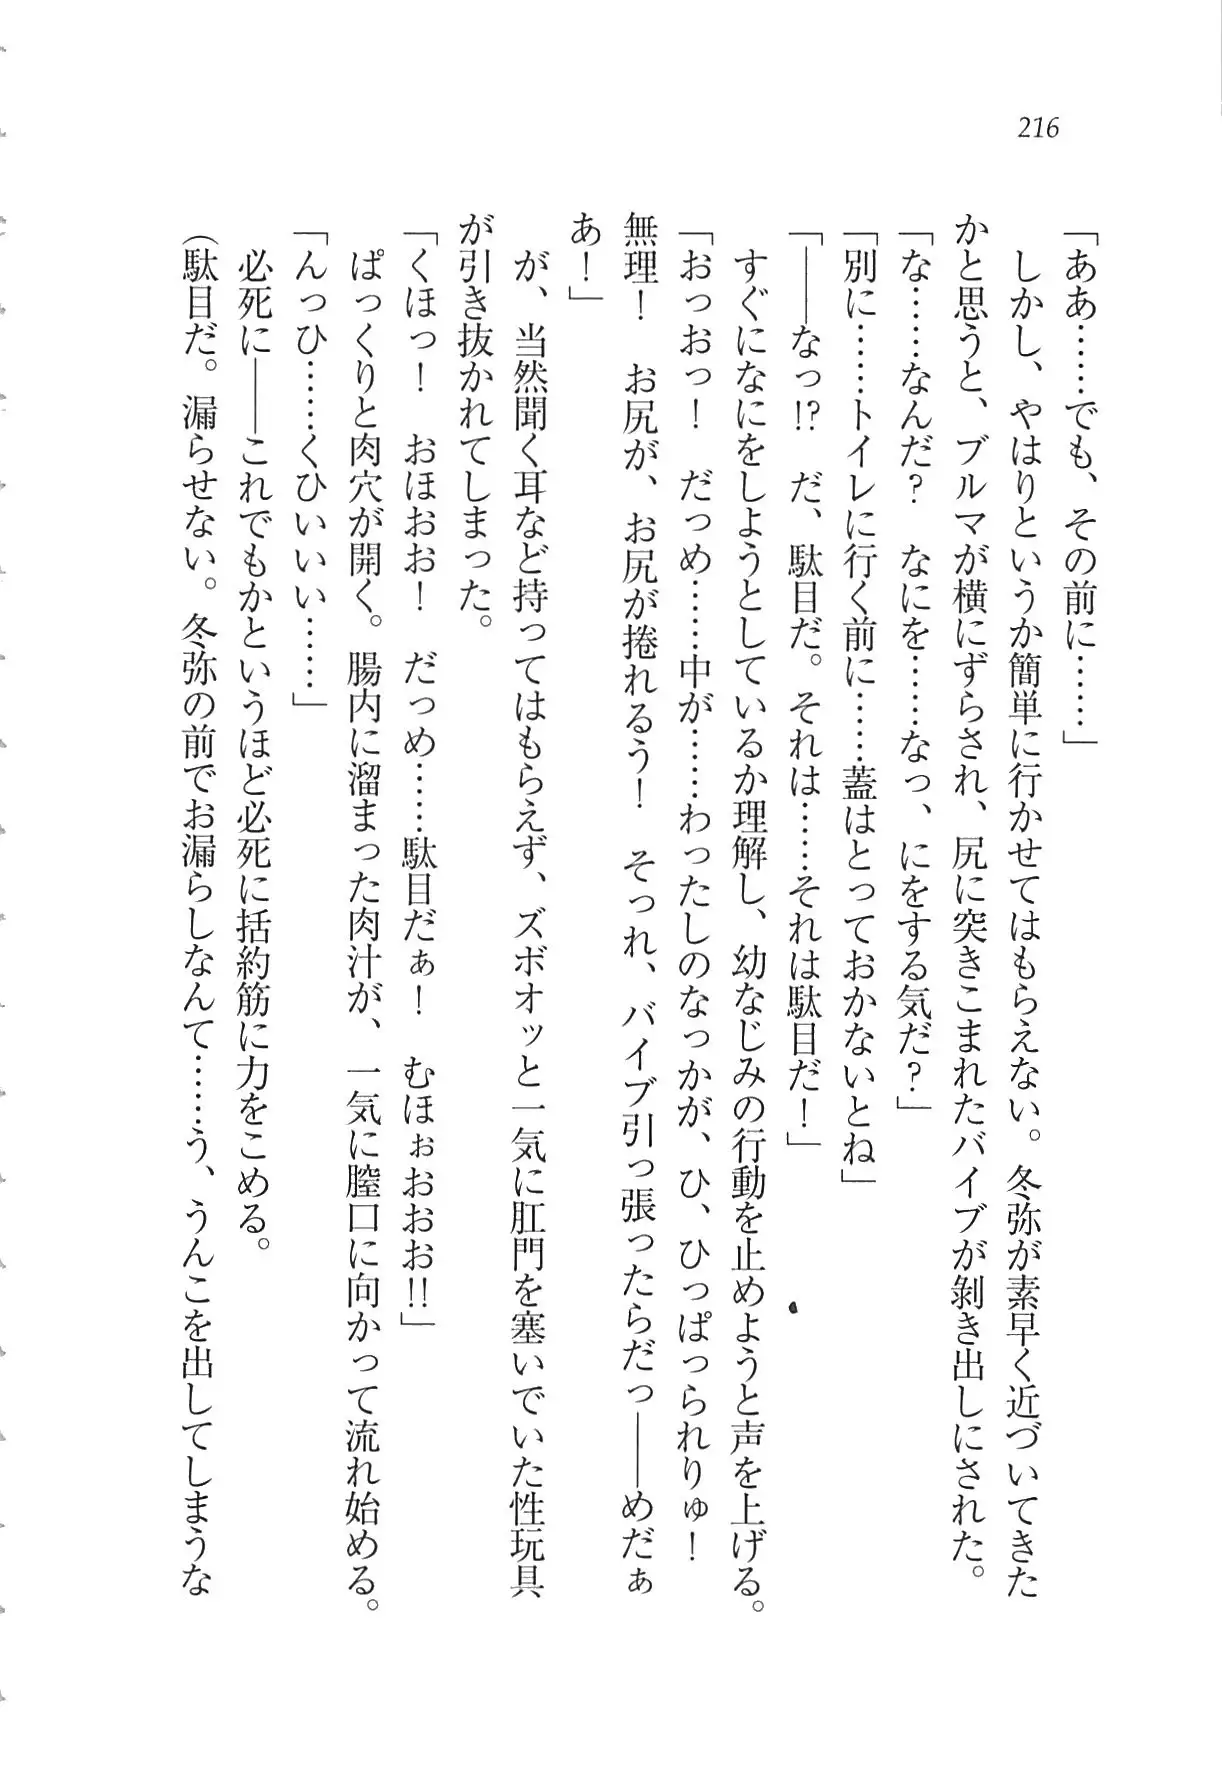 216
「ああ……でも、その前に……」
しかし、やはりというか簡単に行かせてはもらえない。冬弥が素早く近づいてきた
かと思うと、ブルマが横にずらされ、尻に突きこまれたバイブが剥き出しにされた。
「な……なんだ？　なにを……なっ、にをする気だ？」
「別に……トイレに行く前に……蓋はとっておかないとね」
「――なっ!?　だ、駄目だ。それは……それは駄目だ！」
すぐになにをしようとしているか理解し、幼なじみの行動を止めようと声を上げる。
「おっおっ！　だっめ……中が……わったしのなっかが、ひ、ひっぱっられりゅ！
無理！　お尻が、お尻が捲れるう！　そっれ、バイブ引っ張ったらだっ――めだぁ
あ！」
が、当然聞く耳など持ってはもらえず、ズボオッと一気に肛門を塞いでいた性玩具
が引き抜かれてしまった。
「くほっ！　おほおお！　だっめ……駄目だぁ！　むほぉおおお!!」
ぱっくりと肉穴が開く。腸内に溜まった肉汁が、一気に膣口に向かって流れ始める。
「んっひ……くひいいい……」
必死に――これでもかというほど必死に括約筋に力をこめる。
（駄目だ。漏らせない。冬弥の前でお漏らしなんて……う、うんこを出してしまうな